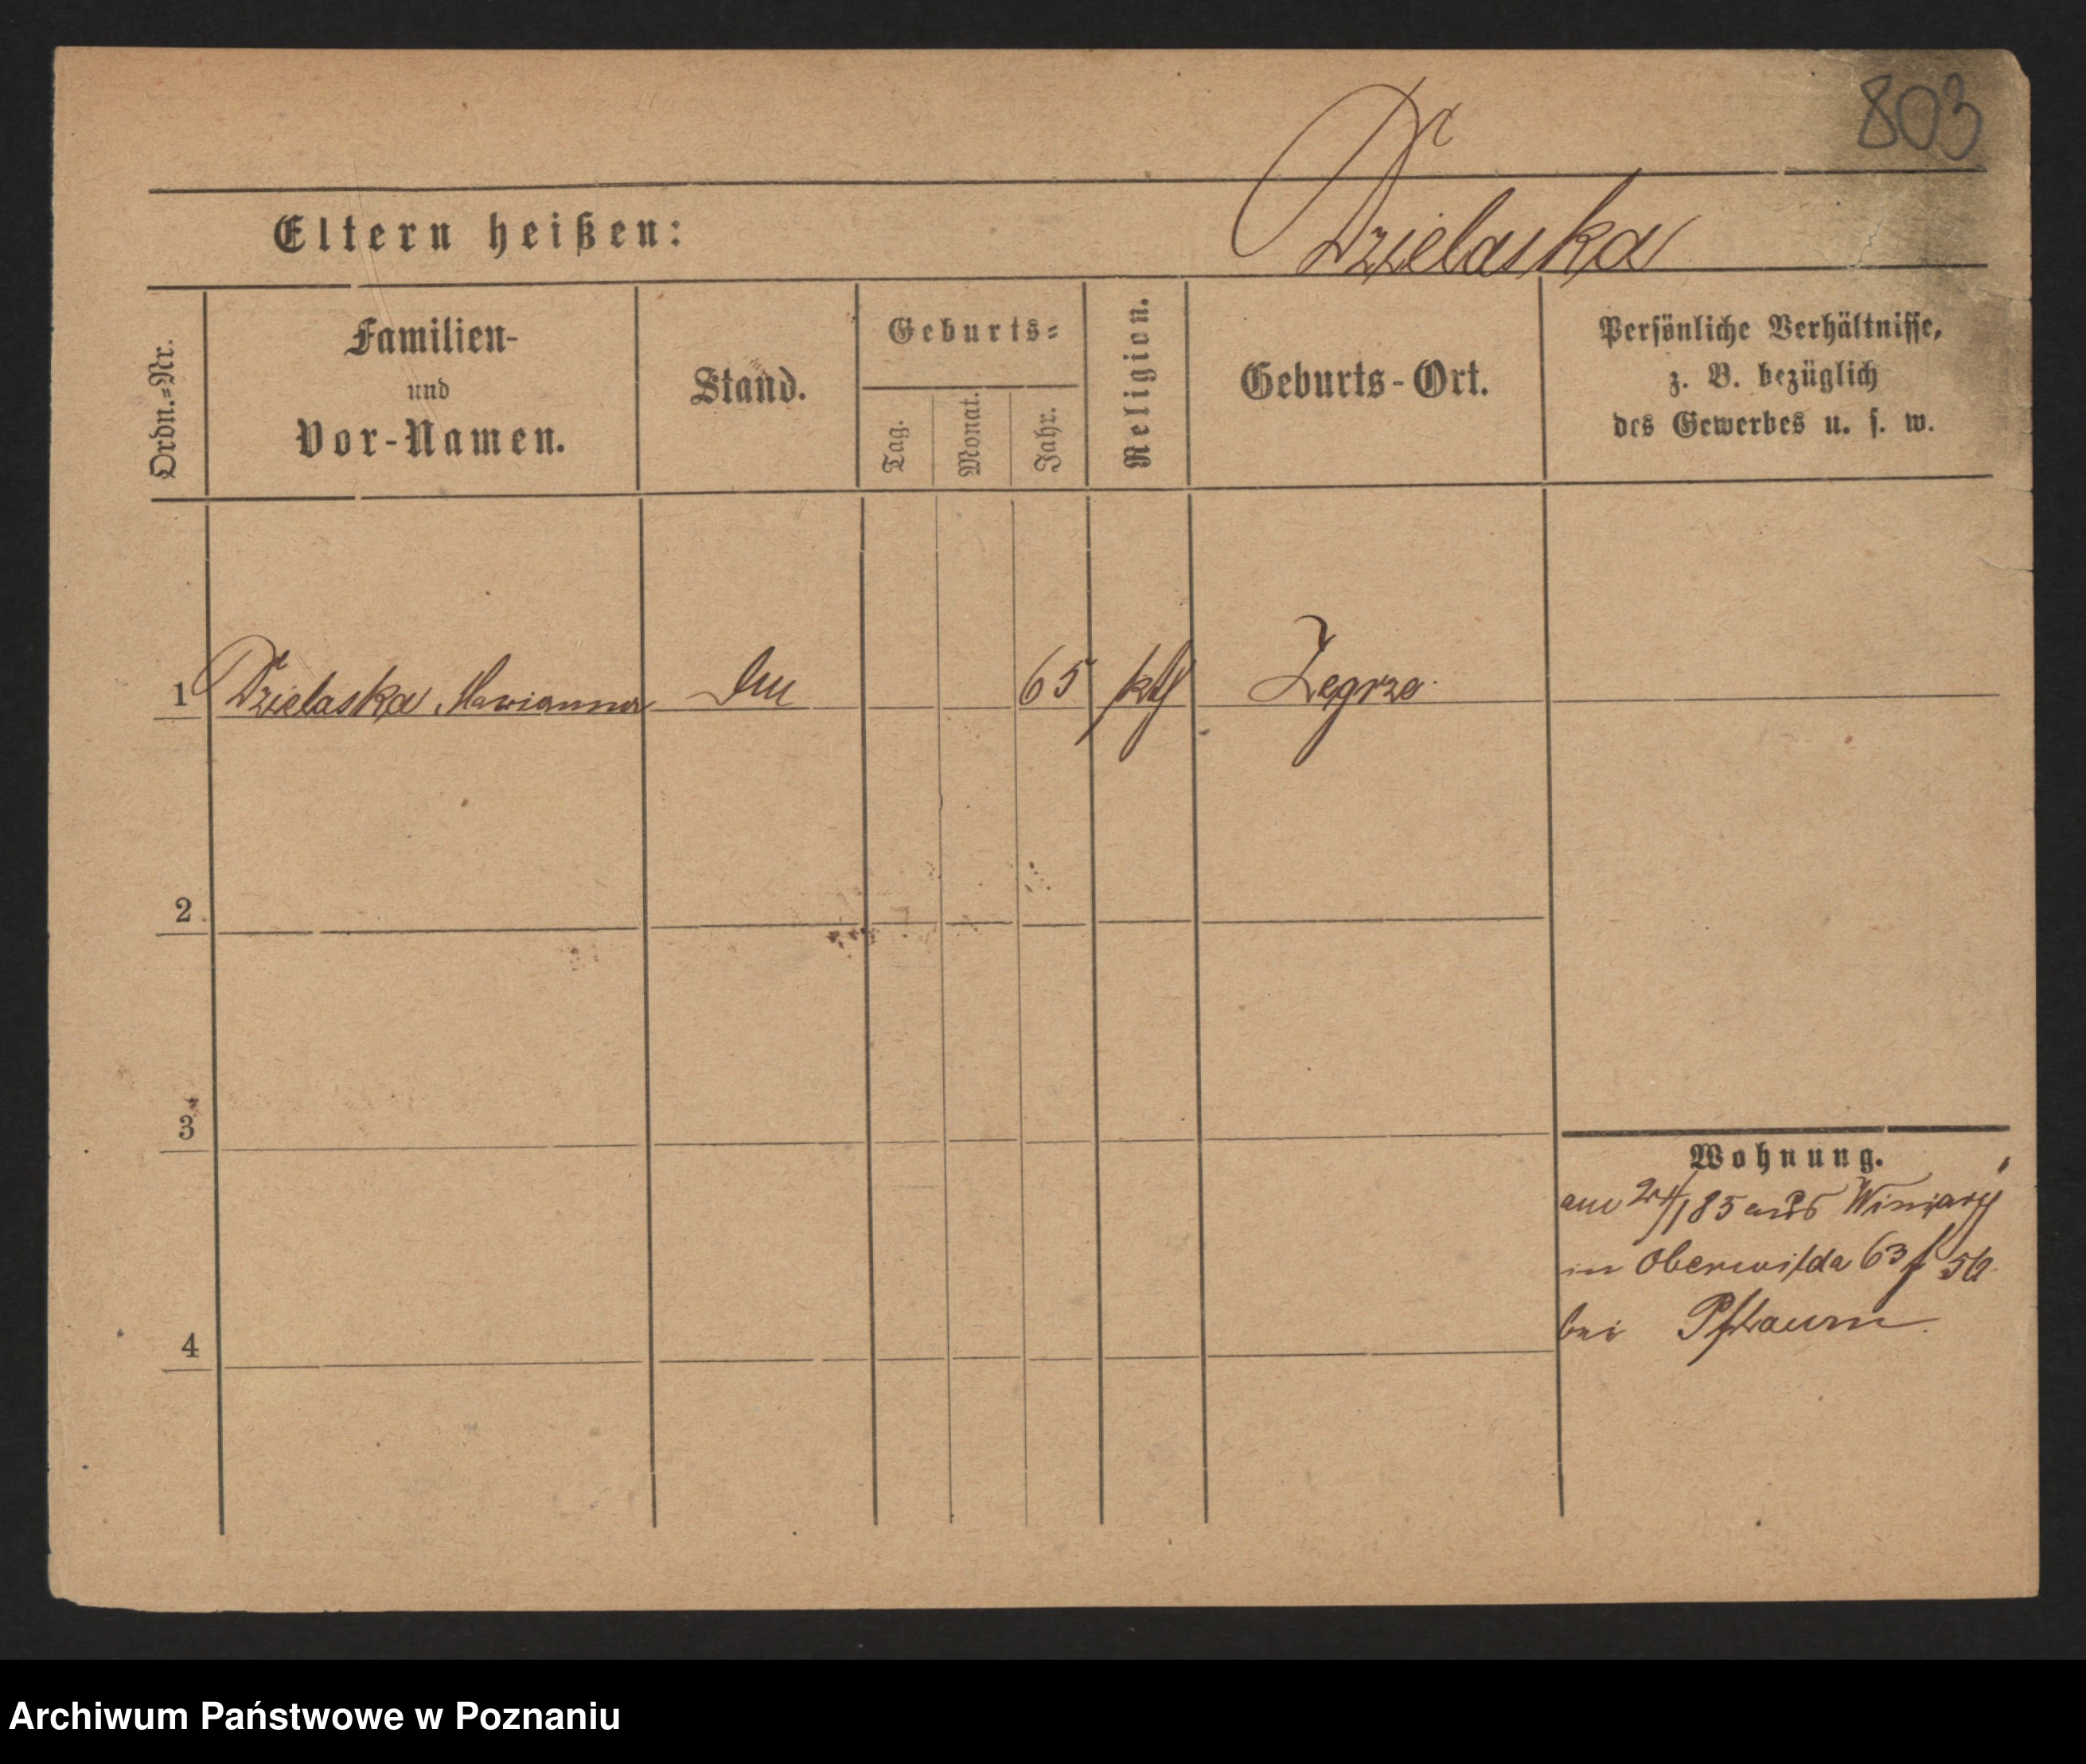 803
Dzielaska
Eltern heißen:
Ordn.=Nr.
Familien-
und
Vor-Namen.
Stand.
Geburts=
Tag.
Monat.
Jahr.
Religion.
Geburts-Ort.
Persönliche Verhältnisse,
z. B. bezüglich
des Gewerbes u. s. w.
1 Dzielaska Marianna 65 kth Zegrze
2
3
4
Wohnung.
am 24/1 85 aus Winiary
in Oberwilda 63
bei Pflaum
Archiwum Państwowe w Poznaniu